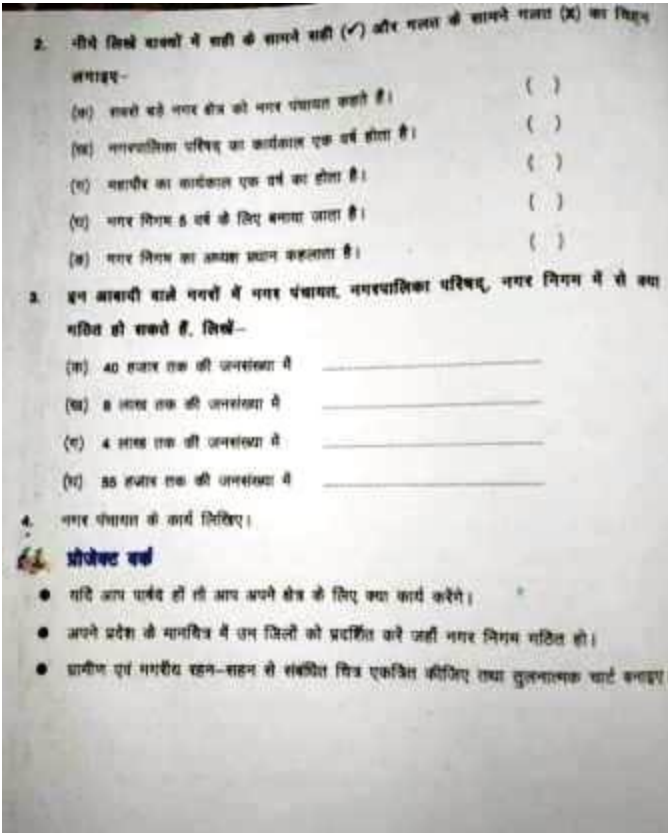 2. नीचे लिखे वाक्यों में सही के सामने सही (✓) और गलत के सामने गलत (X) का चिह्न
लगाइए-
(क) सबसे बड़े नगर क्षेत्र को नगर पंचायत कहते हैं। ( )
(ख) नगरपालिका परिषद् का कार्यकाल एक वर्ष होता है। ( )
(ग) महापौर का कार्यकाल एक वर्ष का होता है। ( )
(घ) नगर निगम 5 वर्ष के लिए बनाया जाता है। ( )
(ङ) नगर निगम का अध्यक्ष प्रधान कहलाता है। ( )
3. इन आबादी वाले नगरों में नगर पंचायत, नगरपालिका परिषद्, नगर निगम में से क्या
गठित हो सकते हैं, लिखें-
(क) 40 हजार तक की जनसंख्या में
(ख) 8 लाख तक की जनसंख्या में
(ग) 4 लाख तक की जनसंख्या में
(घ) हजार तक की जनसंख्या में
4. नगर पंचायत के कार्य लिखिए।
प्रोजेक्ट वर्क
● यदि आप पार्षद हों तो आप अपने क्षेत्र के लिए क्या कार्य करेंगे।
● अपने प्रदेश के मानचित्र में उन जिलों को प्रदर्शित करें जहाँ नगर निगम गठित हो।
● ग्रामीण एवं नगरीय रहन-सहन से संबंधित चित्र एकत्रित कीजिए तथा तुलनात्मक चार्ट बनाइए